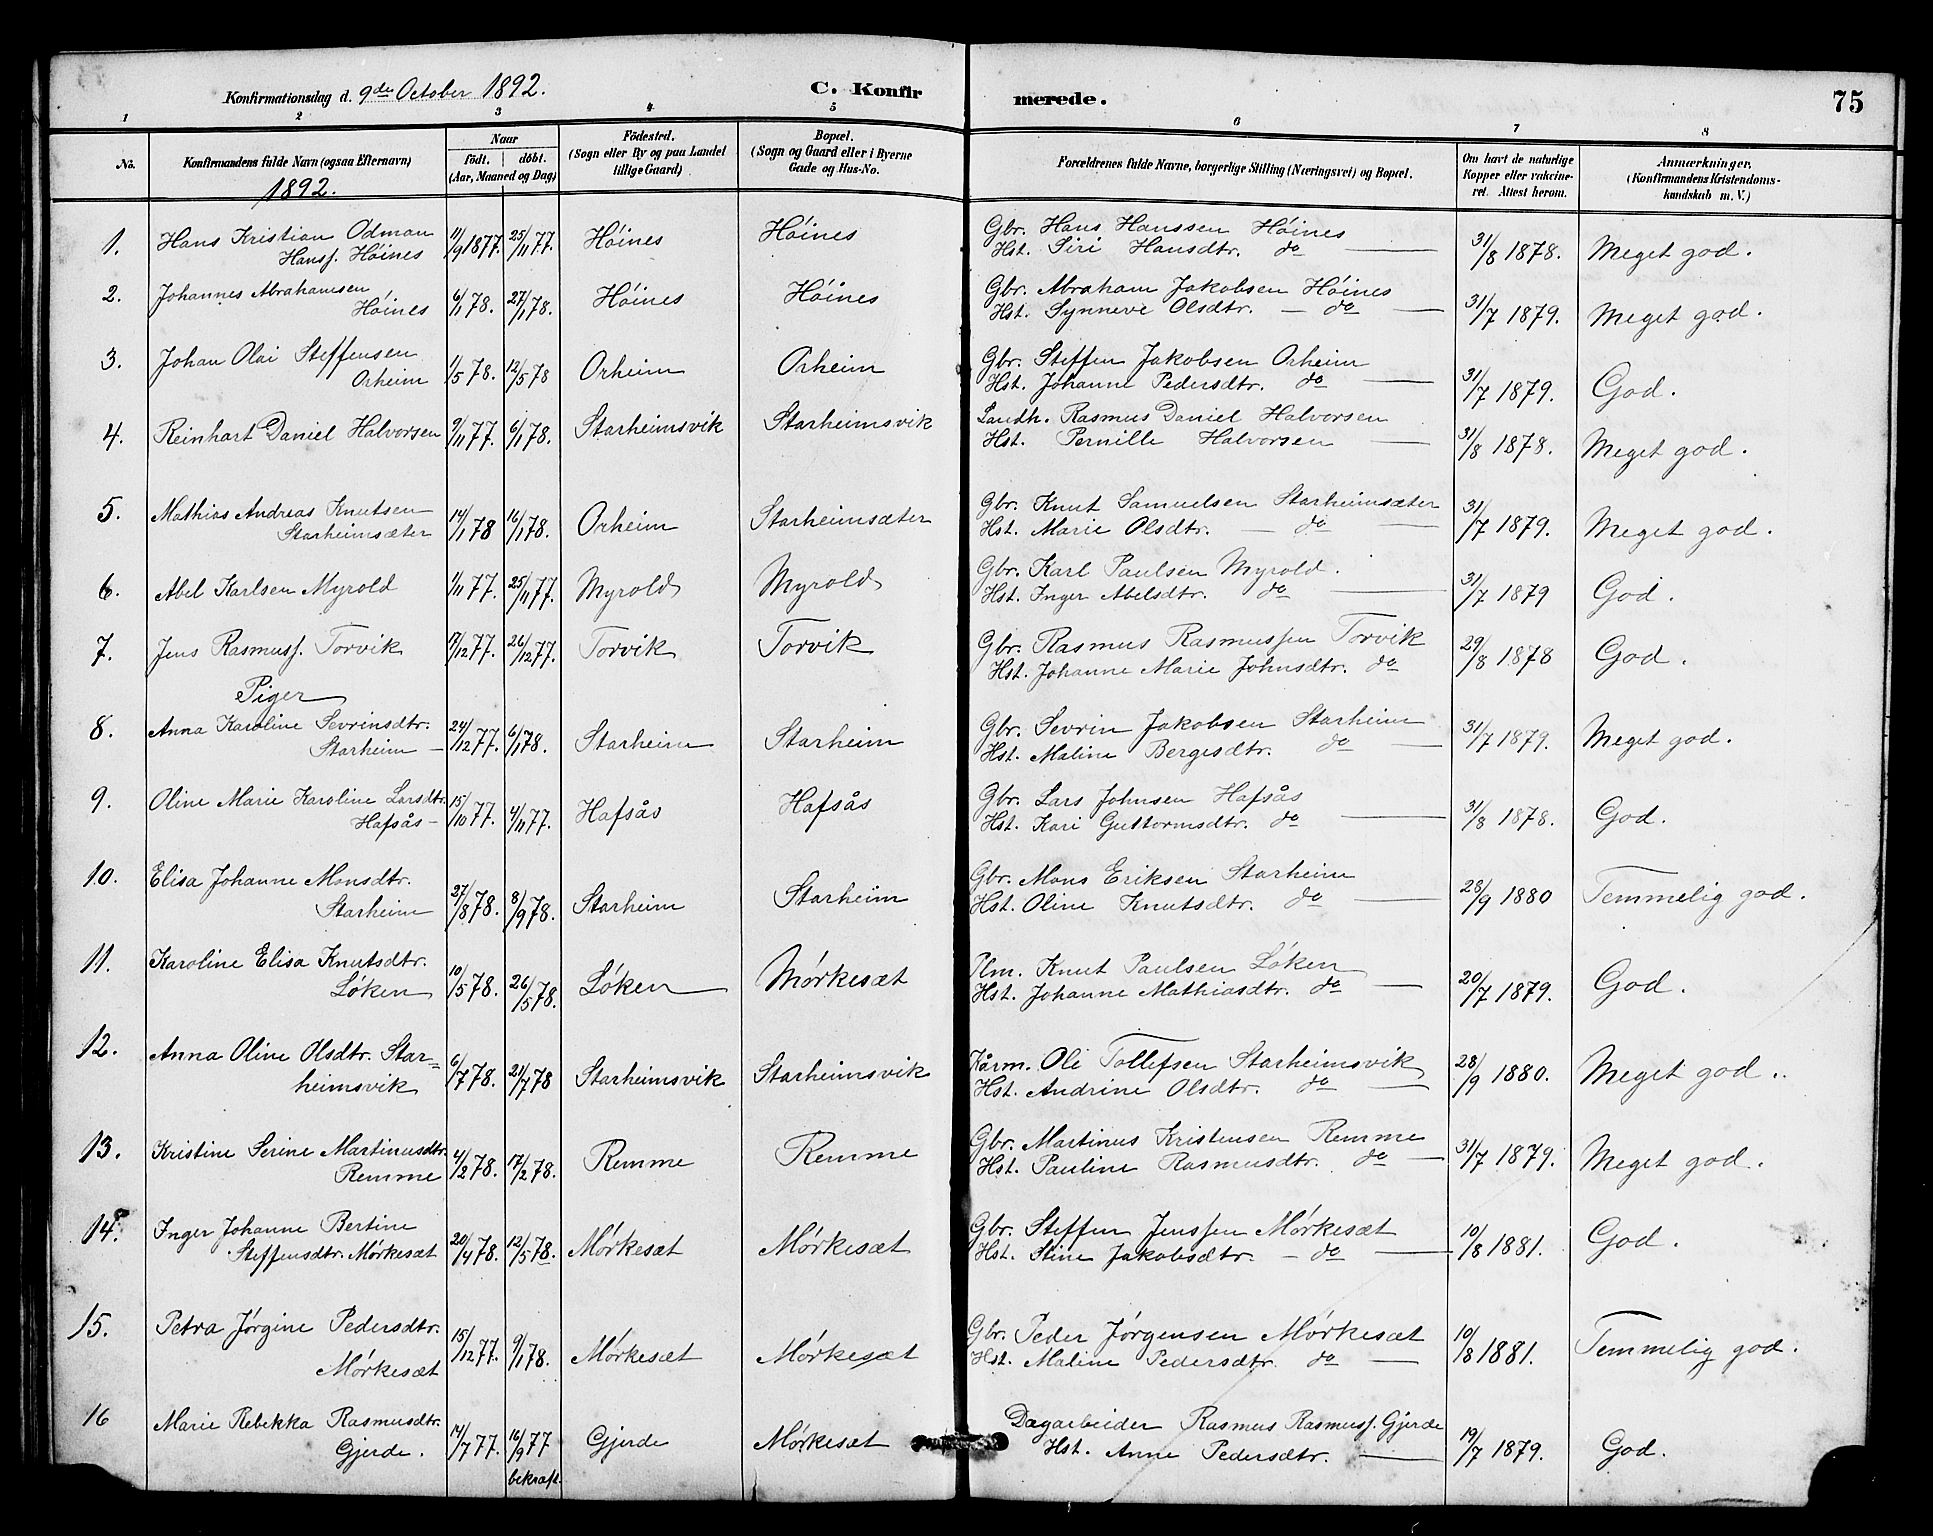 Konfirmationsdag d. 9de October 1892. C. Konfirmerede. 75
1 2 3 4 5 6 7 8
No. Konfirmandens fulde Navn (ogsaa Efternavn) Naar födt. döbt. (Aar, Maaned og Dag) Födested. (Sogn eller By og paa Landet tillige Gaard) Bopæl. (Sogn og Gaard eller i Byerne Gade og Hus-No. Forældrenes fulde Navne, borgerlige Stilling (Næringsvei) og Bopæl. Om havt de naturlige Kopper eller vakcineret. Attest herom. Anmærkninger. (Konfirmandens Kristendomskundskab m. V.)
1892.
1. Hans Kristian Odman Hanss. Höines 11/9 1877. 25/11 77. Höines Höines Gbr. Hans Hanssen Höines
Hst. Siri Hansdtr. do 31/8 1878. Meget god.
2. Johannes Abrahamsen Höines 6/1 78. 27/1 78. Höines Höines Gbr. Abraham Jakobsen Höines
Hst. Synneve Olsdtr. do 31/7 1879. Meget god.
3. Johan Olai Steffensen Orheim 1/5 78. 12/5 78 Orheim Orheim Gbr. Steffen Jakobsen Orheim
Hst. Johanne Pedersdtr. do 31/7 1879. God.
4. Reinhart Daniel Halvorsen 9/11 77. 6/1 78. Starheimsvik Starheimsvik Landh. Rasmus Daniel Halvorsen
Hst. Pernille Halvorsen 31/8 1878. Meget god.
5. Mathias Andreas Knutsen Starheimsæter 14/1 78 16/1 78. Orheim Starheimsæter Gbr. Knut Samuelsen Starheimsæter
Hst. Marie Olsdtr. do 31/7 1879. Meget god.
6. Abel Karlsen Myrold 1/11 77. 25/11 77. Myrold Myrold Gbr. Karl Paulsen Myrold.
Hst. Inger Abelsdtr. do 31/7 1879 God.
7. Jens Rasmuss. Torvik 17/12 77. 26/12 77. Torvik Torvik Gbr. Rasmus Rasmussen Torvik
Hst. Johanne Marie Johnsdtr. do 29/8 1878 God.
Piger
8. Anna Karoline Sevrinsdtr. Starheim 24/12 77. 6/1 78. Starheim Starheim Gbr. Sevrin Jakobsen Starheim
Hst. Maline Bergesdtr. do 31/7 1879. Meget god.
9. Oline Marie Karoline Larsdtr. Hafsås 15/10 77. 4/11 77. Hafsås Hafsås Gbr. Lars Johnsen Hafsås
Hst. Kari Guttormsdtr. do 31/8 1878. God.
10. Elisa Johanne Monsdtr. Starheim 27/8 78. 8/9 78. Starheim Starheim Gbr. Mons Eriksen Starheim
Hst. Oline Knutsdtr. do 28/9 1880 Temmelig god.
11. Karoline Elisa Knutsdtr. Löken 10/5 78. 26/5 78. Löken Mörkesæt Plm. Knut Paulsen Löken
Hst. Johanne Mathiasdtr. do 20/7 1879. God.
12. Anna Oline Olsdtr. Starheimsvik 6/7 78. 21/7 78 Starheimsvik Starheimsvik Kårm. Ole Tollefsen Starheimsvik
Hst. Andrine Olsdtr. do 28/9 1880. Meget god.
13. Kristine Serine Martinusdtr. Remme 4/2 78. 17/2 78. Remme Remme Gbr. Martinus Kristensen Remme
Hst. Pauline Rasmusdtr. do 31/7 1879. Meget god.
14. Inger Johanne Bertine Steffensdtr. Mörkesæt 20/4 78. 12/5 78. Mörkesæt Mörkesæt Gbr. Steffen Jenssen Mörkesæt
Hst. Stine Jakobsdtr. do 10/8 1881. God.
15. Petra Jörgine Pedersdtr. Mörkesæt 15/12 77. 9/1 78. Mörkesæt Mörkesæt Gbr. Peder Jörgensen Mörkesæt
Hst. Maline Pedersdtr. do 10/8 1881. Temmelig god.
16 Marie Rebekka Rasmusdtr. Gjerde. 14/7 77. 16/9 77 bekræft. Gjerde Mörkesæt Dagarbeider Rasmus Rasmuss. Gjerde
Hst. Anne Pedersdtr. 19/7 1879. God.